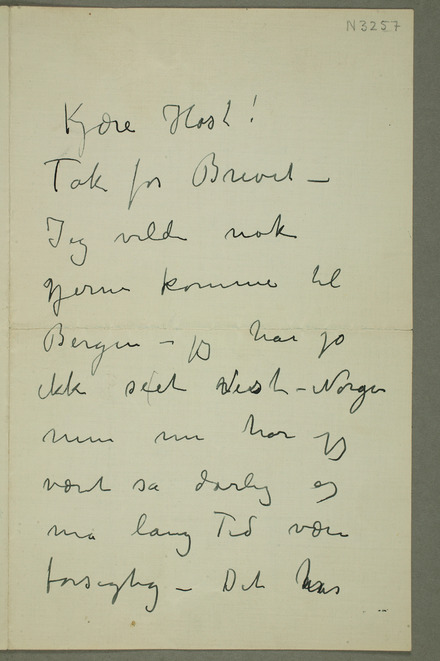 N3257
Kjære Høst!
Tak for Brevet –
Jeg vilde nok
gjerne komme til
Bergen – jeg har jo
ikke seet Vest-Norge
men nu har jeg
været så dårlig og
må lang Tid være
forsigtig – Det